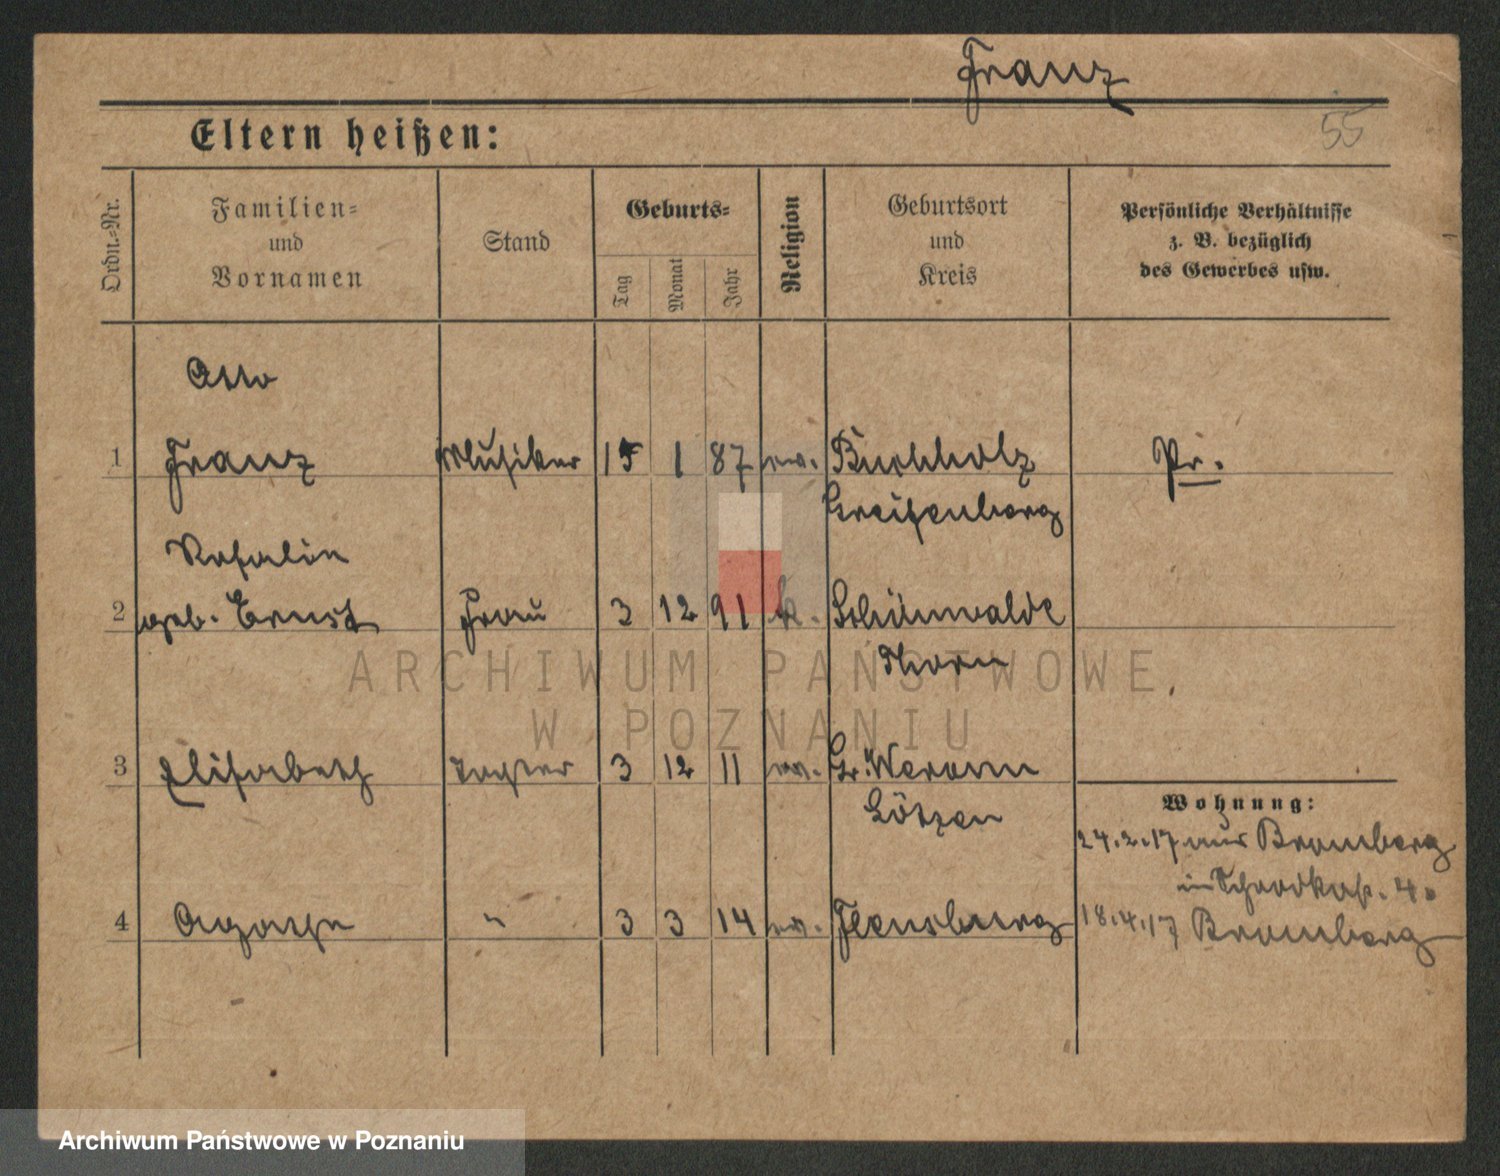 Franz
55
Eltern heißen:
Ordn.-Nr.
Familien- und Vornamen
Stand
Geburts-
Tag
Monat
Jahr
Religion
Geburtsort und Kreis
Persönliche Verhältnisse z. B. bezüglich des Gewerbes usw.
Otto
1 Franz Musiker 15 1 87 ev. Buchholz Pr.
Greifenberg
Rosalie
2 geb. Ernst Frau 3 12 91 k. Schönwalde
Thorn
3 Elisabeth Tochter 3 12 11 ev. Gr. Weronn
Lötzen
Wohnung:
24.2.17 aus Bromberg
4.
4 " 3 3 14 ev. Flensburg 18.4.17 Bromberg
ARCHIWUM PAŃSTWOWE
W POZNANIU
Archiwum Państwowe w Poznaniu